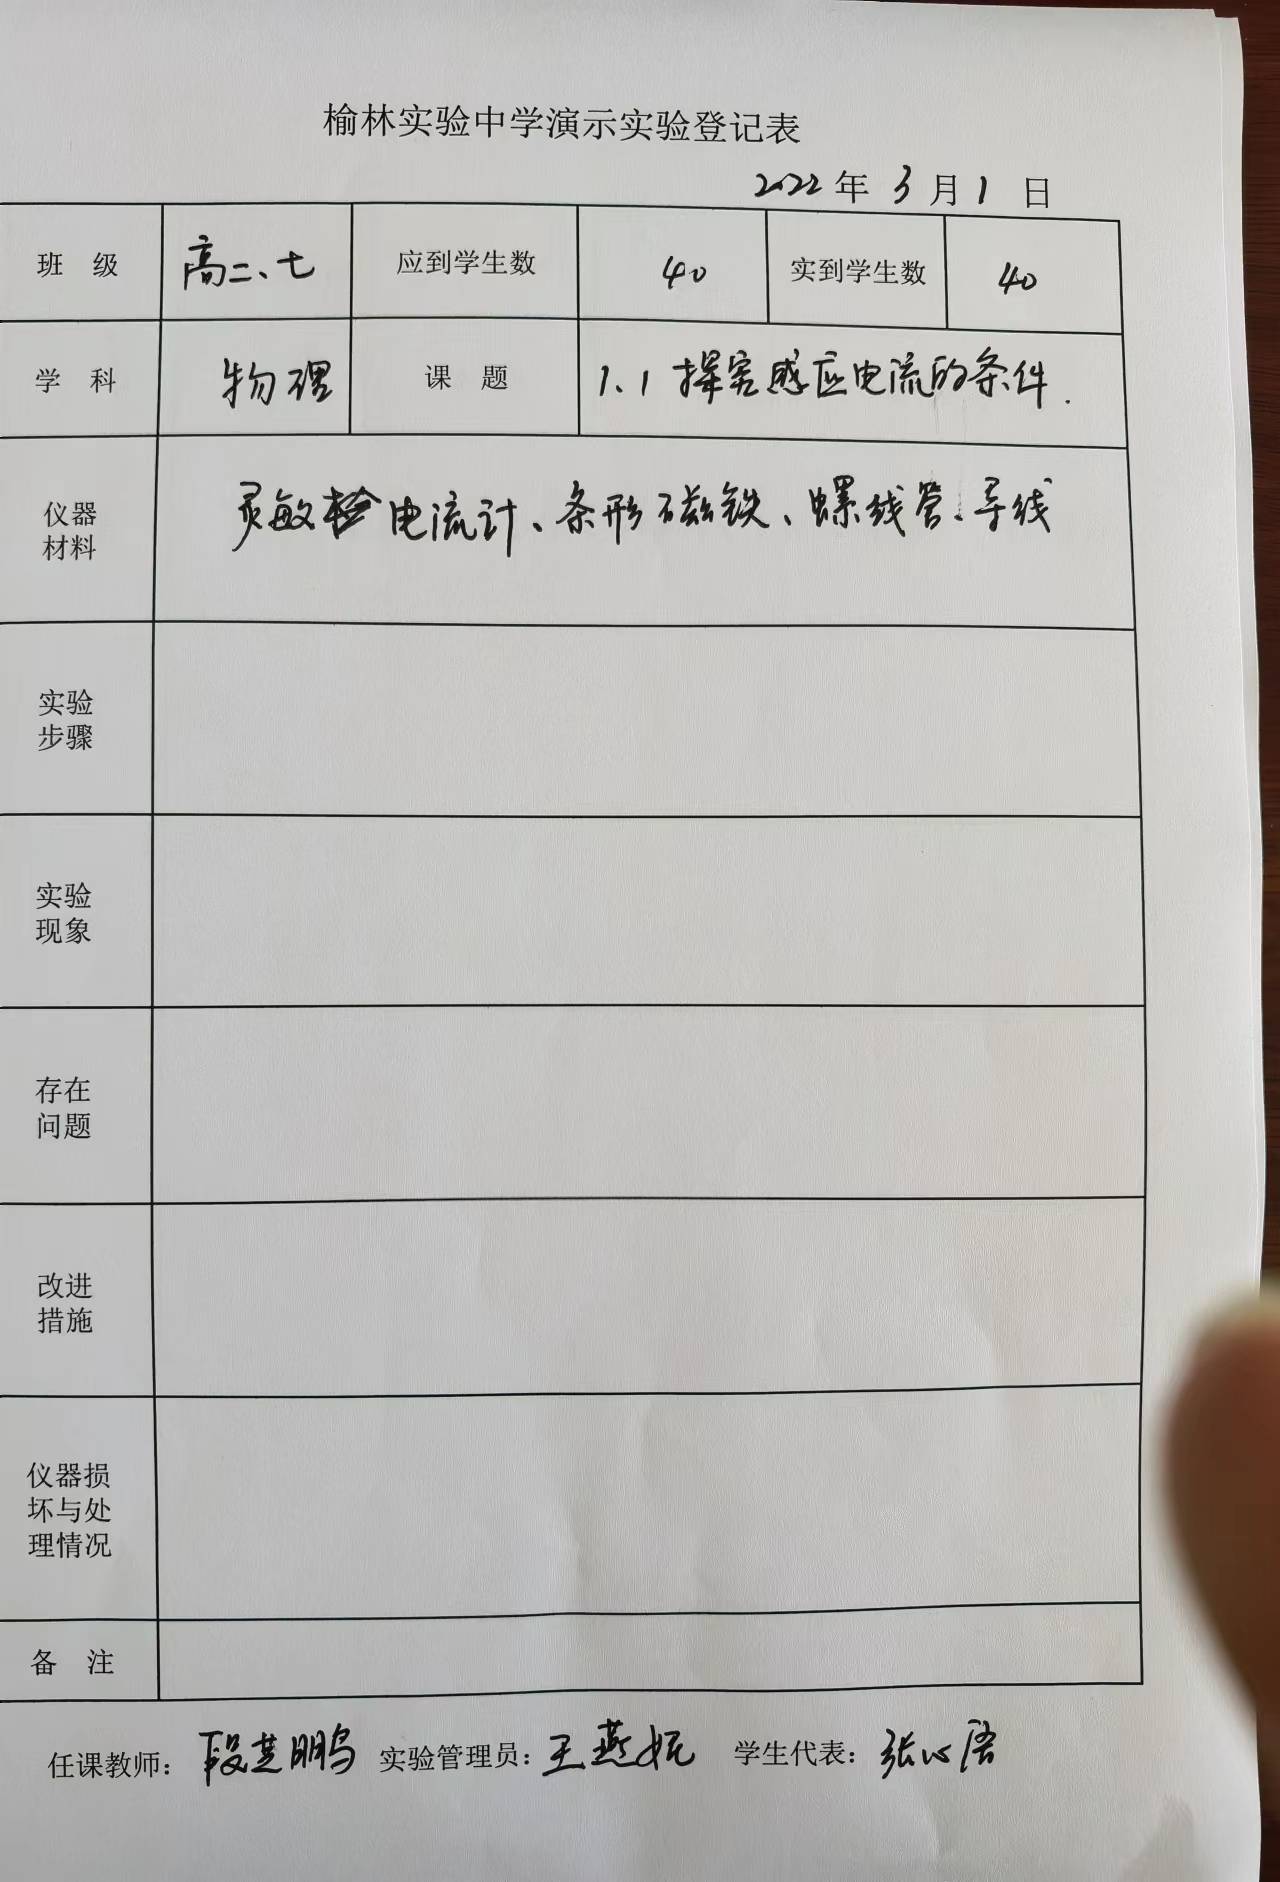 榆林实验中学演示实验登记表
2022年3月1日
班级 高二、七 应到学生数 40 实到学生数 40
学科 物理 课题 1.1 探究感应电流的条件.
仪器
材料
灵敏检电流计、条形磁铁、螺线管、导线
实验
步骤
实验
现象
存在
问题
改进
措施
仪器损
坏与处
理情况
备注
任课教师：段芝鹏 实验管理员：王燕妮 学生代表：张心语